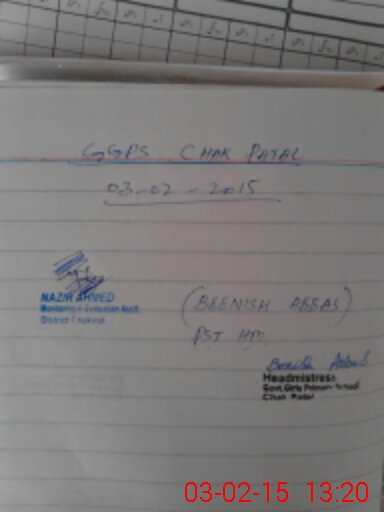 GGPS CHAK PATAL
03-02-2015
NAZIR AHMED
Monitoring & Evaluation Asstt.
District Chakwal
(BEENISH ABBAS)
PST HM
Benish Abbas
Headmistress
Govt. Girls Primary School
Chak Patal
03-02-15 13:20